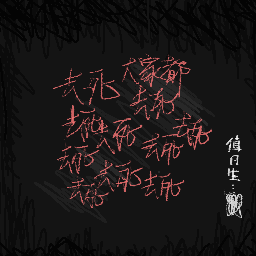 去死 大家都
去死
去死 去死 去死
去死 去死
去死 去死 去死
值日生: